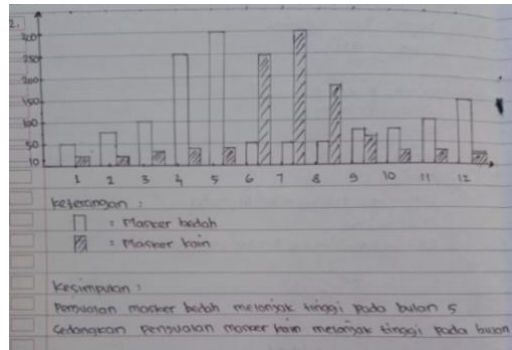 2.
300
250
200
150
100
50
10
1 2 3 4 5 6 7 8 9 10 11 12
Keterangan :
= Masker bedah
= Masker kain
Kesimpulan :
Penjualan masker bedah melonjak tinggi pada bulan 5
Sedangkan penjualan masker kain melonjak tinggi pada bulan